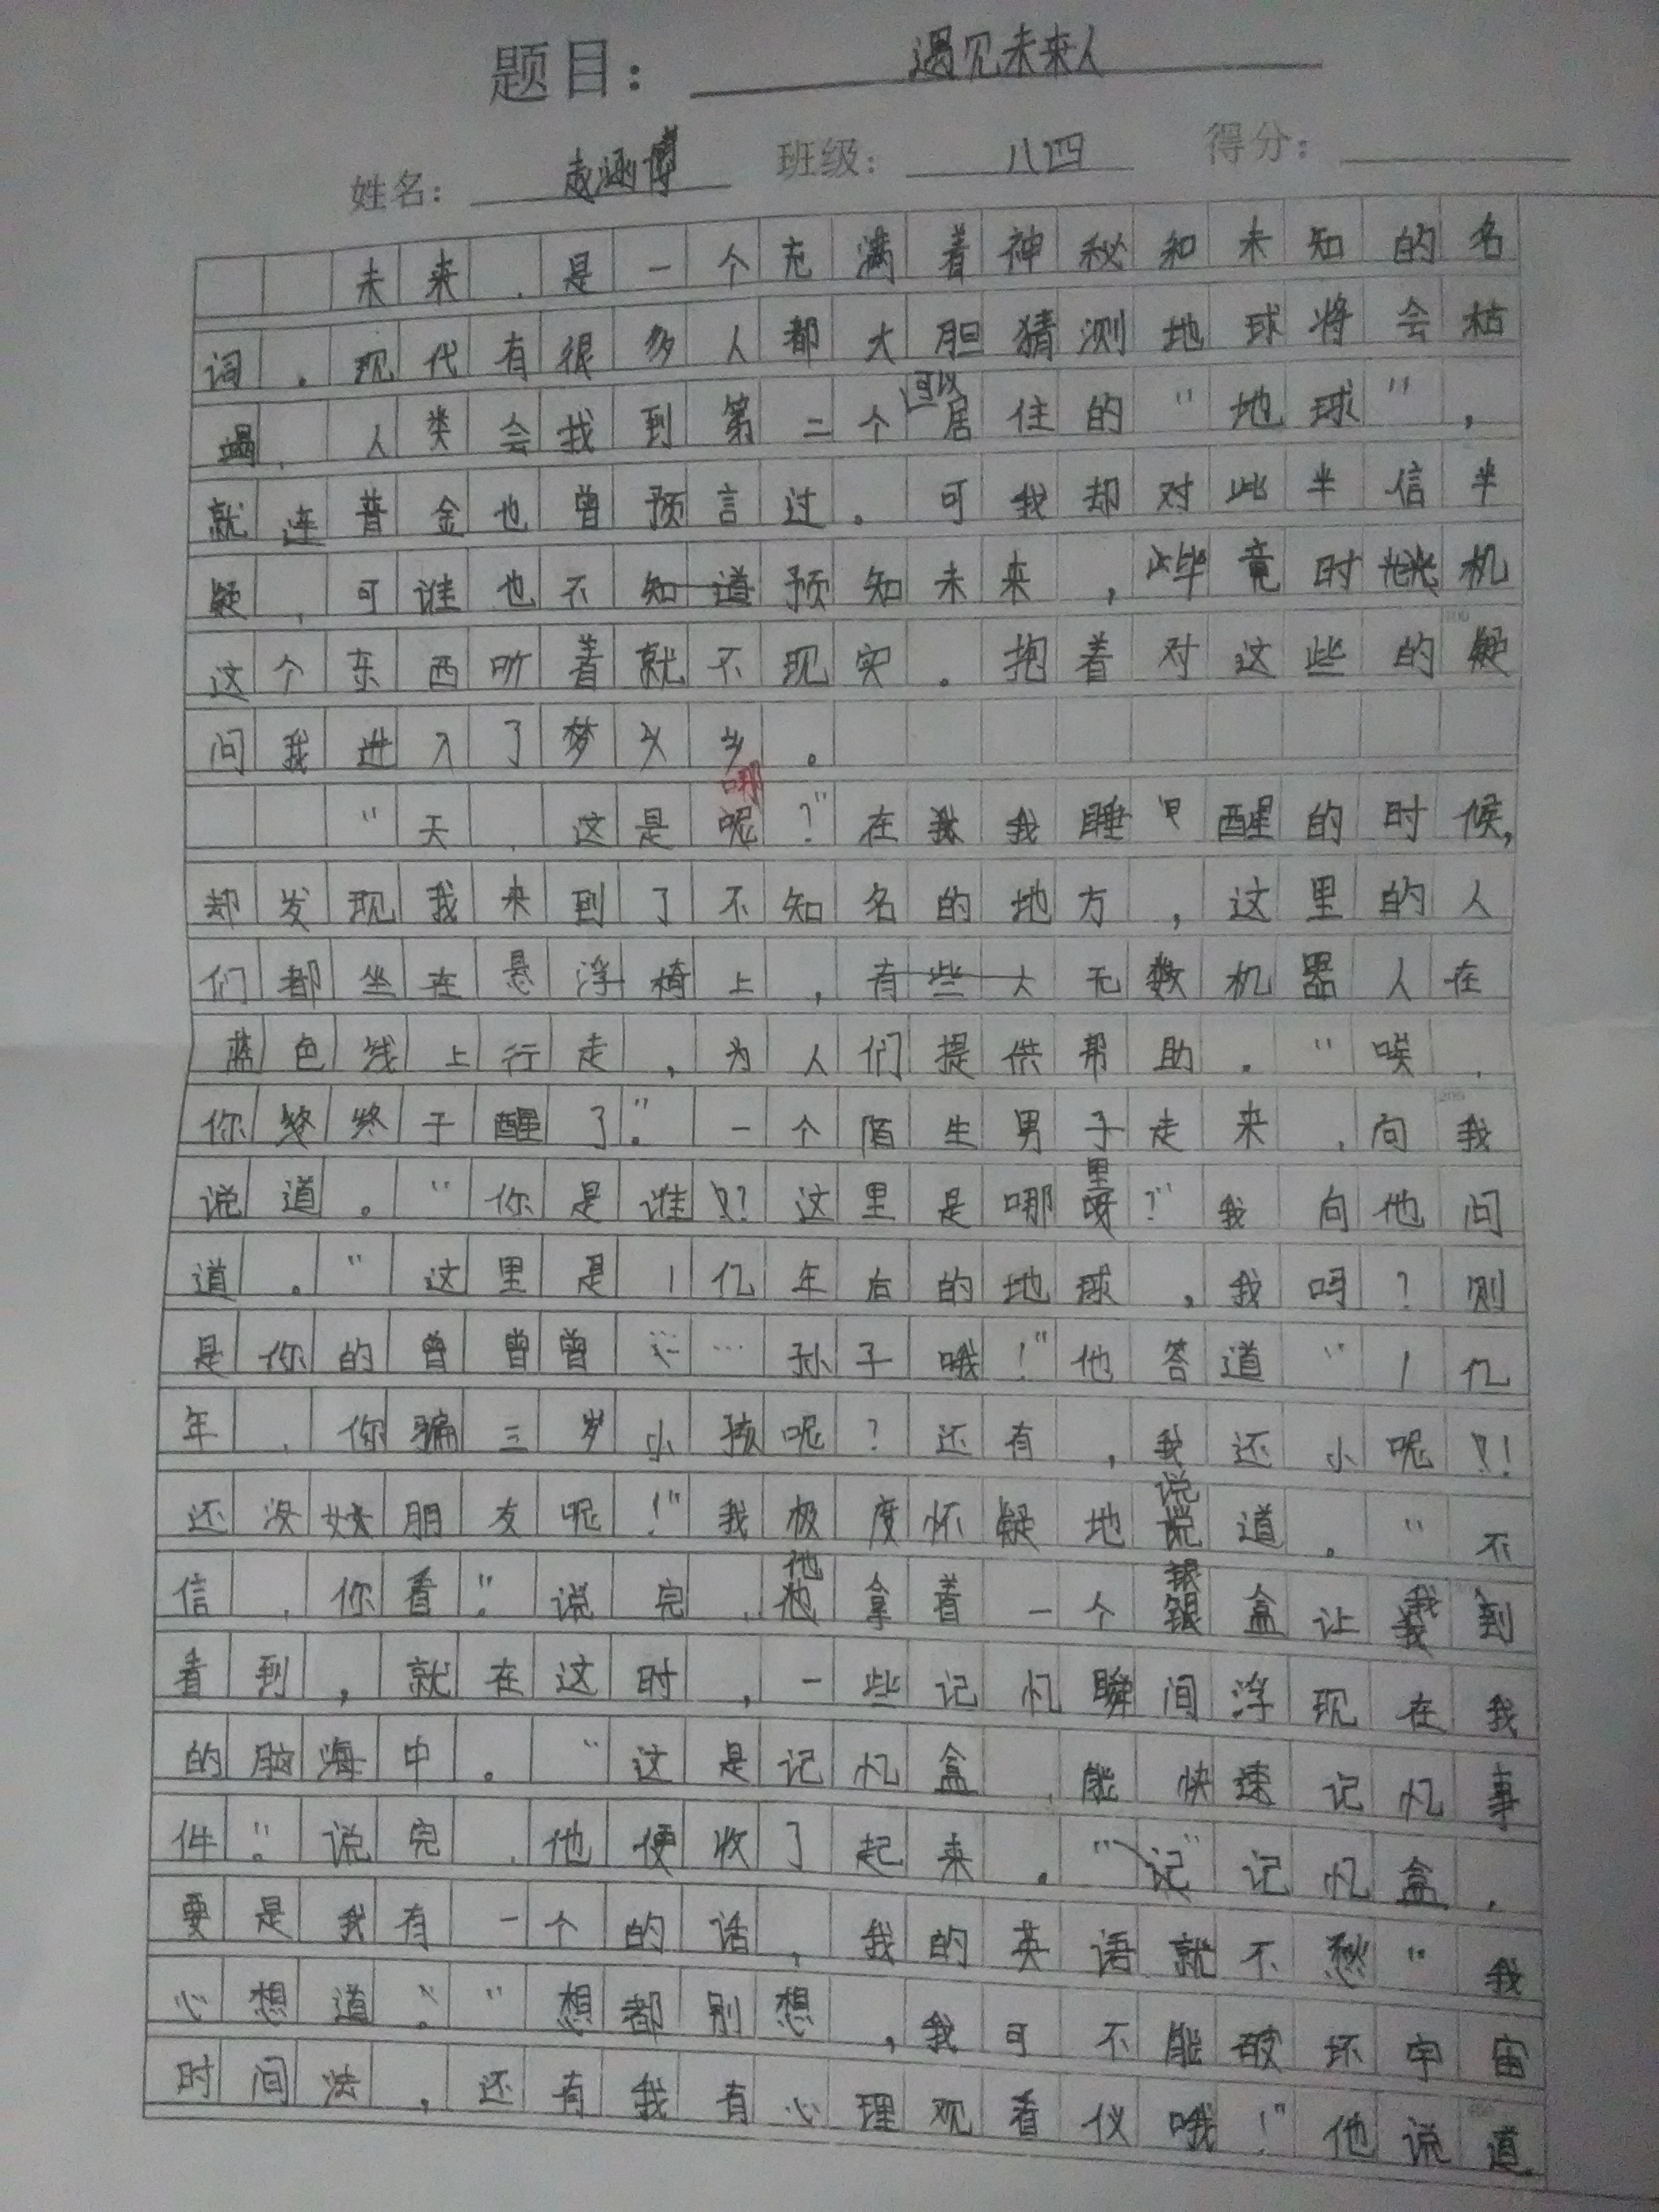 题目：遇见未来人
姓名：赵涵博 班级：八四 得分：
未来，是一个充满着神秘和未知的名
词。现代有很多人都大胆猜测地球将会枯
竭，人类会找到第二个可以居住的“地球”，
就连普金也曾预言过。可我却对此半信半
疑，可谁也不知道预知未来，毕竟时光机
这个东西听着就不现实。抱着对这些的疑
问我进入了梦乡。
“天，这是哪呢？”在我睡醒的时候，
却发现我来到了不知名的地方，这里的人
们都坐在悬浮椅上，有些大无数机器人在
蓝色线上行走，为人们提供帮助。“唉，
你终于醒了。”一个陌生男子走来，向我
说道。“你是谁？！这里是哪里呀？”我向他问
道。“这里是1亿年后的地球，我吗？则
是你的曾曾曾……孙子哦！”他答道“1亿
年，你骗三岁小孩呢？还有，我还小呢！！
还没女朋友呢！”我极度怀疑地说道。“不
信，你看。”说完，他拿着一个银盒让我到
看到，就在这时，一些记忆瞬间浮现在我
的脑海中。“这是记忆盒，能快速记忆事
件。”说完，他便收了起来。“记忆盒，
要是我有一个的话，我的英语就不愁”我
心想道。“想都别想，我可不能破坏宇宙
时间法，还有我有心理观看仪哦！”他说道。